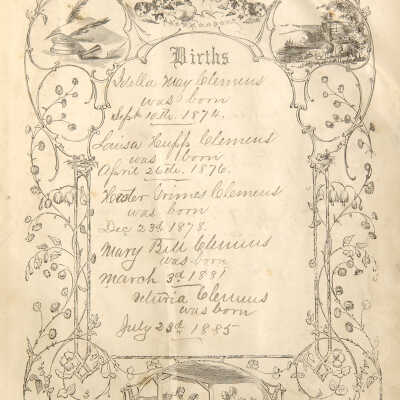 Births
Idella May Clemens
was born
Sept 10th. 1874.
Laisa Hupp Clemens
was born
April 26th. 1876.
Hester Grimes Clemens
was born
Dec 23d. 1878.
Mary Bell Clemens
was born
March 3rd 1881
Clemens
was born
July 23d 1885